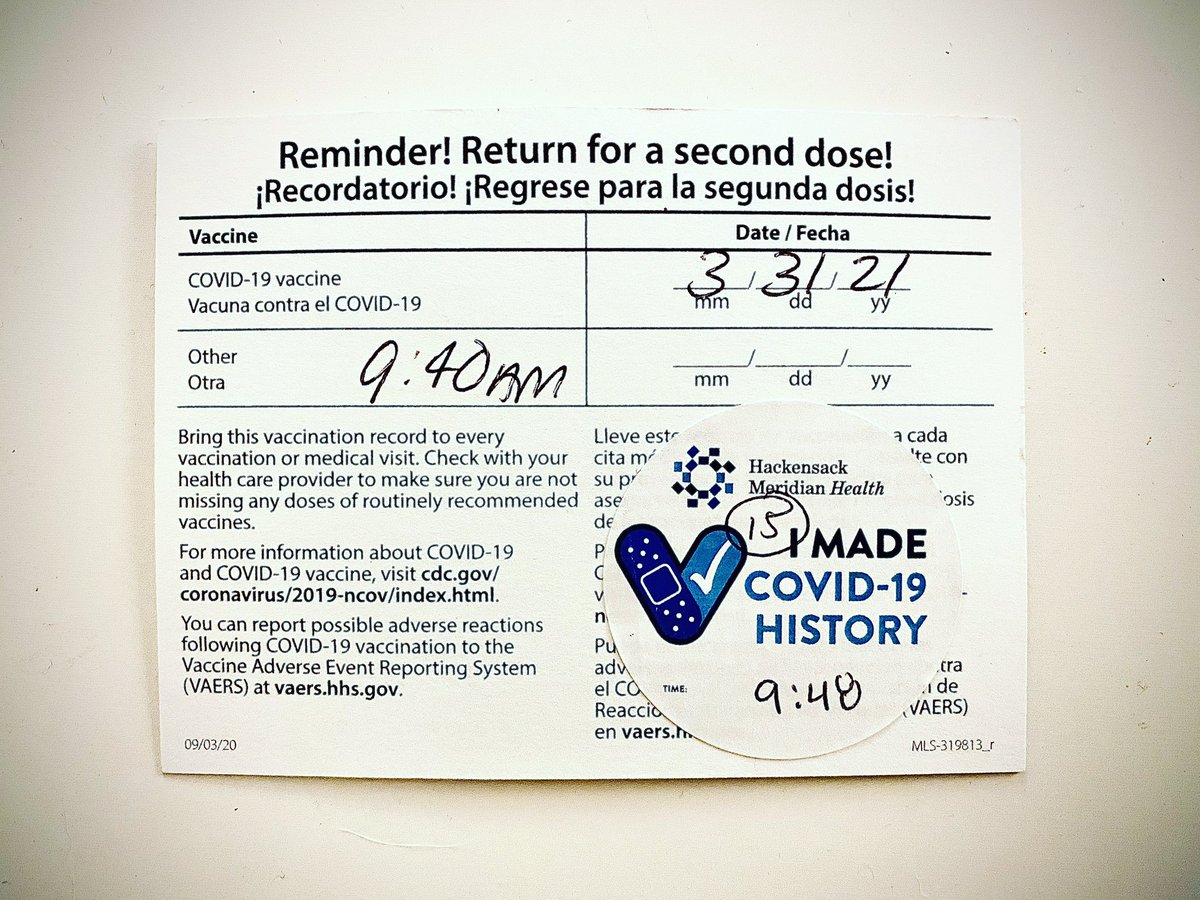 Reminder! Return for a second dose!
¡Recordatorio! ¡Regrese para la segunda dosis!
Vaccine
Date / Fecha
COVID-19 vaccine
Vacuna contra el COVID-19
3 / 31 / 21
mm dd yy
Other
Otra
9:40 AM
/ /
mm dd yy
Bring this vaccination record to every
vaccination or medical visit. Check with your
health care provider to make sure you are not
missing any doses of routinely recommended
vaccines.
For more information about COVID-19
and COVID-19 vaccine, visit cdc.gov/
coronavirus/2019-ncov/index.html.
You can report possible adverse reactions
following COVID-19 vaccination to the
Vaccine Adverse Event Reporting System
(VAERS) at vaers.hhs.gov.
09/03/20
Lleve a cada
cita con
su
el
Reacció (VAERS)
en vaers.h
MLS-319813_r
Hackensack
Meridian Health
15
I MADE
COVID-19
HISTORY
TIME: 9:48